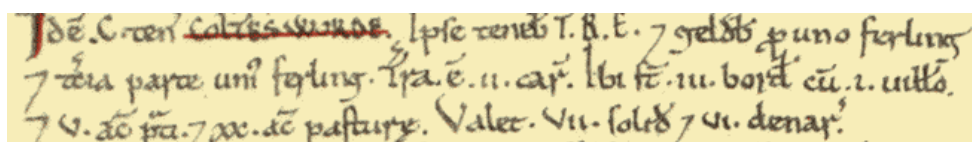 Idē .C. ten COLTESWURDE. Ipse teneb T.R.E. ⁊ geldb p uno ferling
⁊ tcia parte uni⁹ ferling. Tra.ē.ii. car. Ibi st.iii. bord cū.i. uillo.
⁊ v. ac pti. ⁊ xx. ac pasture. Valet. vii. solid ⁊ vi. denar.